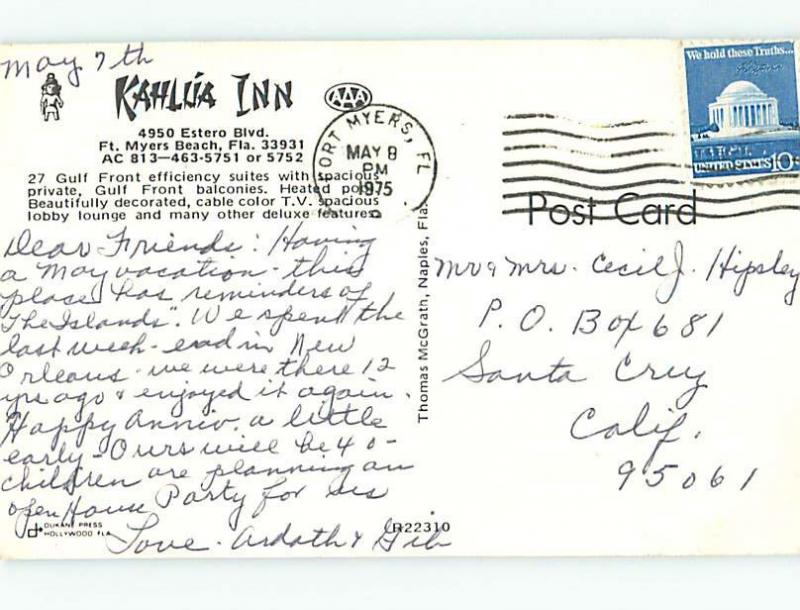 May 7th
KAHLÚA INN
AAA
4950 Estero Blvd.
Ft. Myers Beach, Fla. 33931
AC 813-463-5751 or 5752
27 Gulf Front efficiency suites with spacious
private, Gulf Front balconies. Heated pool
Beautifully decorated, cable color T.V. spacious
lobby lounge and many other deluxe features.
FORT MYERS, FL
MAY 8
PM
1975
We hold these Truths...
UNITED STATES 10c
Post Card
Dear Friends: Having
a May vacation - this
place has reminders of
"The Islands". We spent the
last week-end in New
Orleans - we were there 12
yrs ago & enjoyed it again.
Happy Anniv. a little
early - Ours will be 40 -
children are planning an
open House Party for us
Love - Ardath & Gib
Thomas McGrath, Naples, Fla.
Mr & Mrs. Cecil J. Hipsley
P. O. Box 681
Santa Cruz
Calif.
95061
DUKANE PRESS
HOLLYWOOD FLA.
R22310